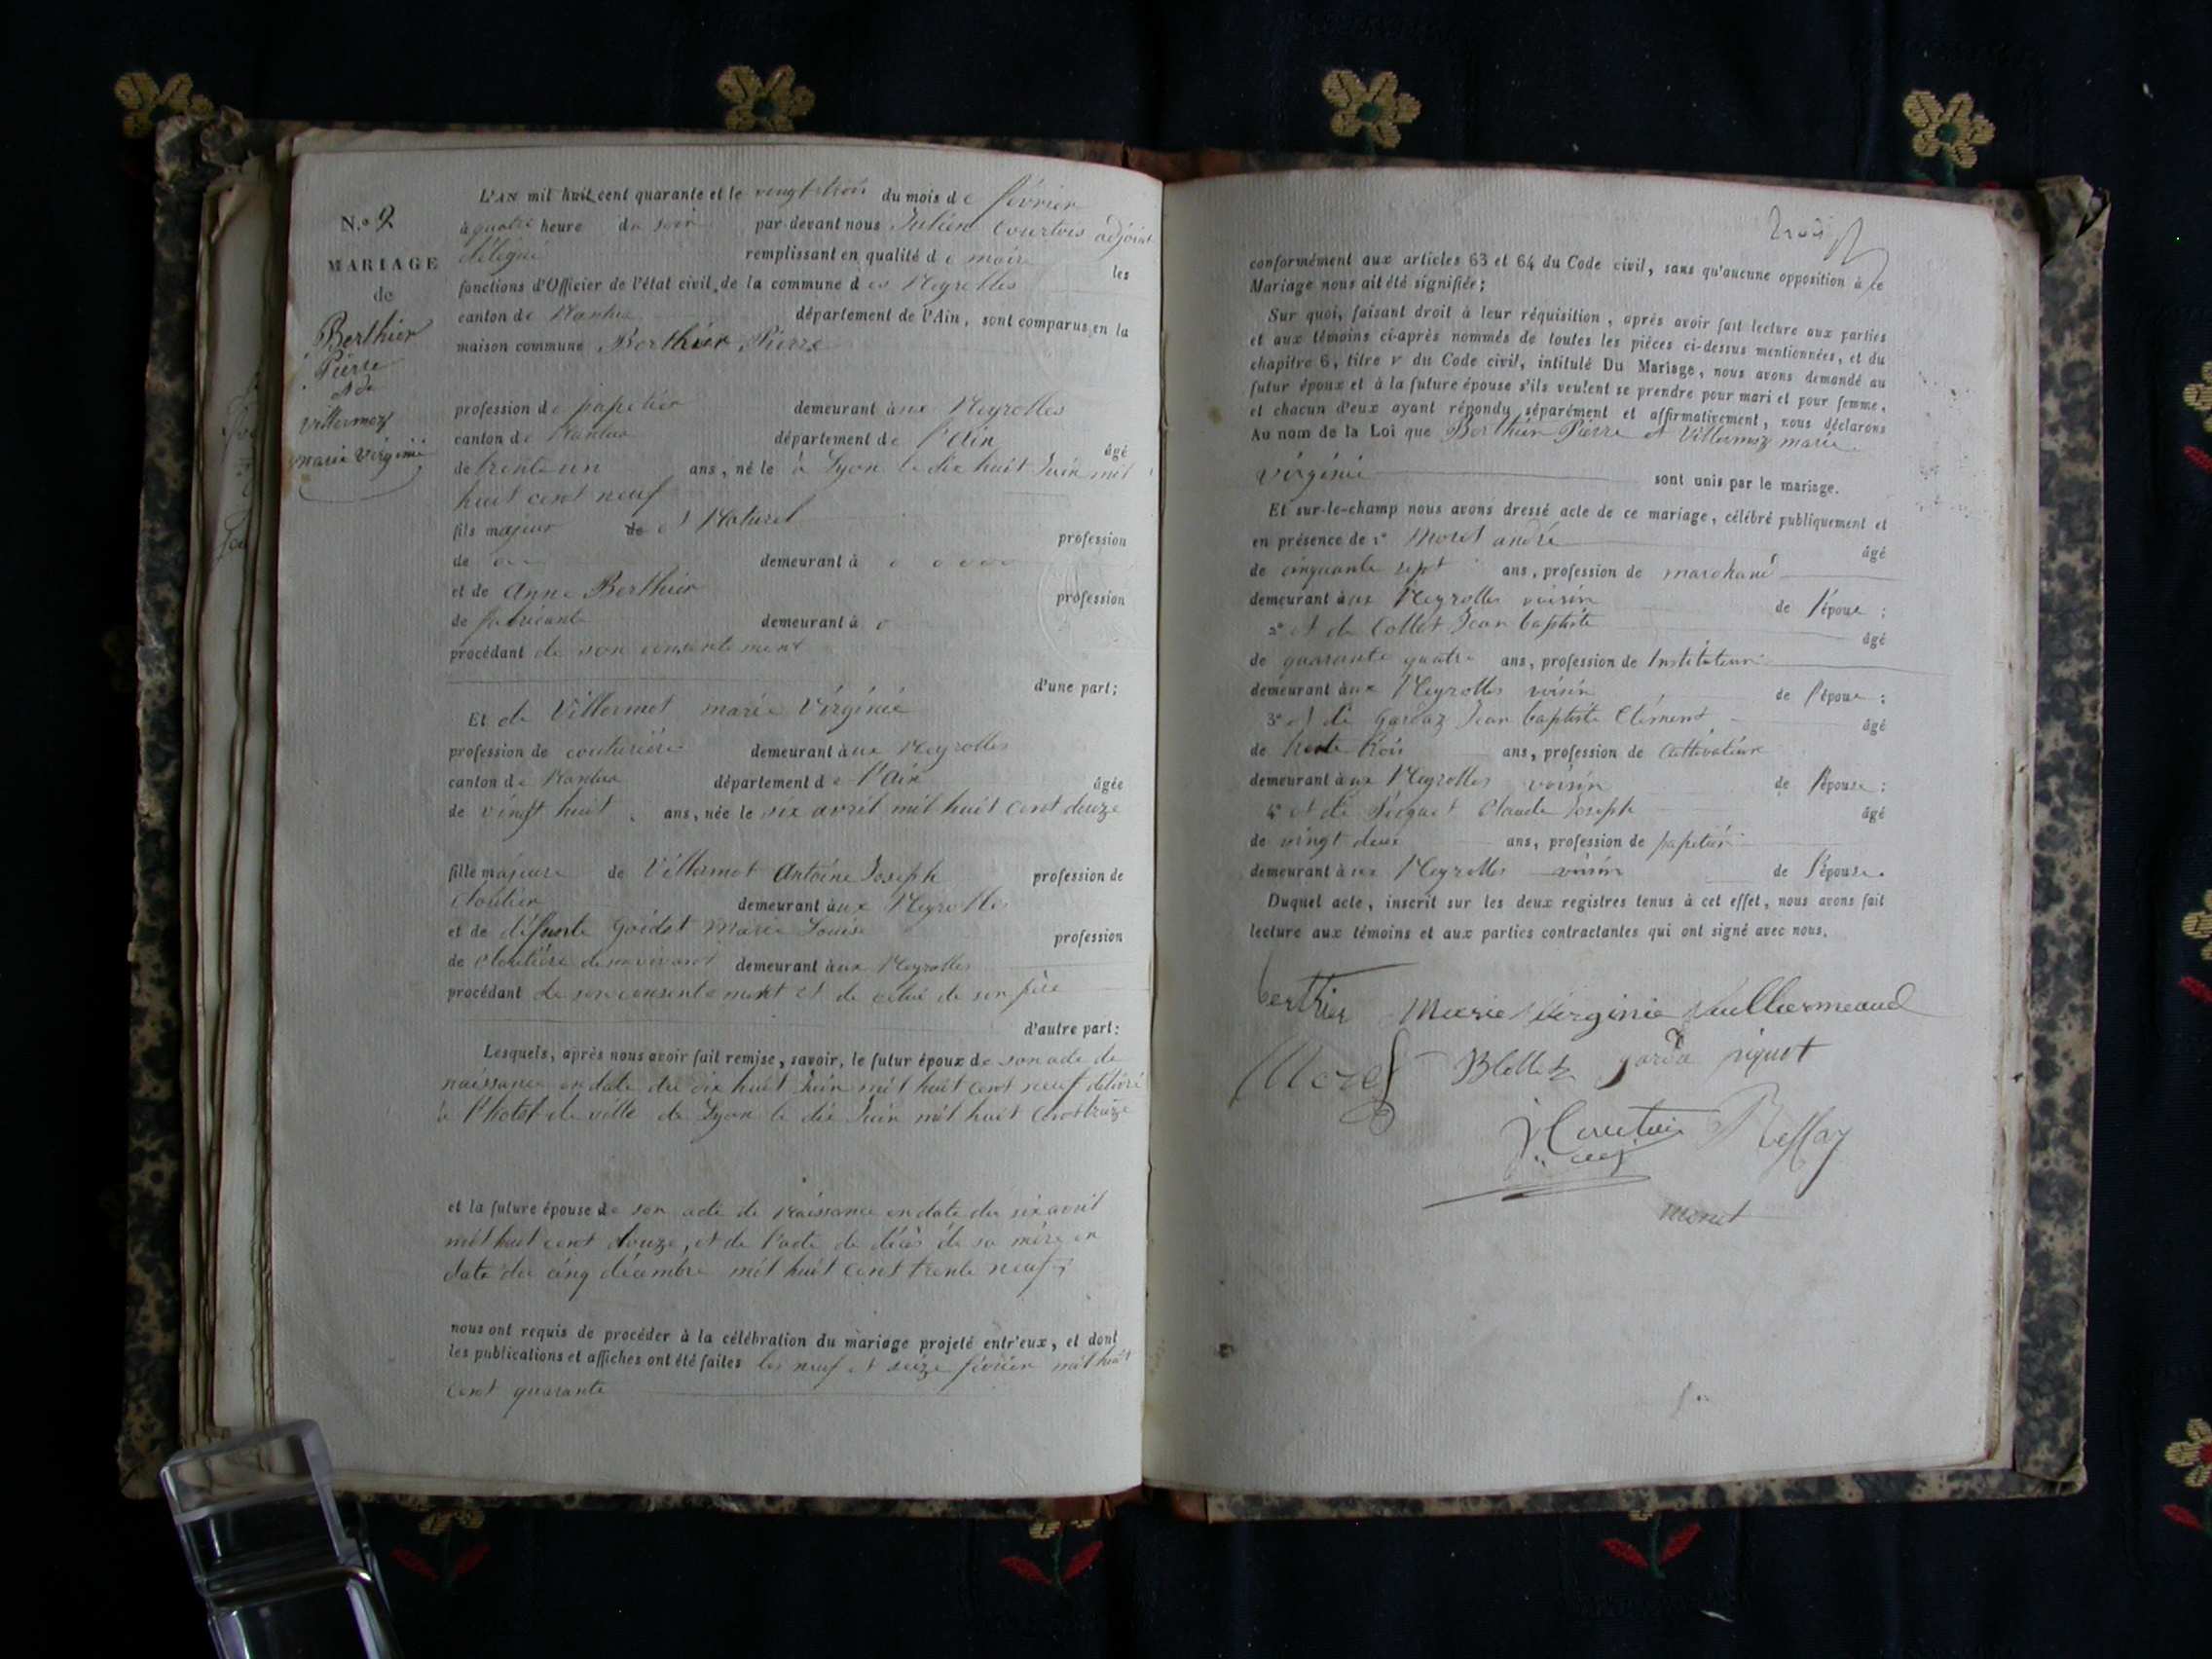 N.º 2
MARIAGE
de
Berthier
Pierre
et de
Villermoz
marie virginie
L'AN mil huit cent quarante et le vingt trois du mois de février
à quatre heure du soir par-devant nous Julien Courtois adjoint
délégué remplissant en qualité de maire les
fonctions d'Officier de l'état civil de la commune des Neyrolles
canton de Nantua département de l'Ain, sont comparus en la
maison commune Berthier Pierre
profession de papetier demeurant aux Neyrolles
canton de Nantua département de l'Ain âgé
de trente un ans, né le à Lyon le dix huit Juin mil
huit cent neuf
fils majeur de et Naturel profession
de demeurant à
et de Anne Berthier profession
de fabricante demeurant à
procédant de son consentement
d'une part;
Et de Villermot marie Virginie
profession de couturière demeurant aux Neyrolles
canton de Nantua département de l'Ain âgée
de vingt huit ans, née le six avril mil huit cent douze
fille majeure de Villermot Antoine Joseph profession de
cloutier demeurant aux Neyrolles
et de défunte Goidet Marie Louise profession
de cloutière de son vivant demeurant aux Neyrolles
procédant de son consentement et de celui de son père
d'autre part:
Lesquels, après nous avoir fait remise, savoir, le futur époux de son acte de
naissance en date du dix huit Juin mil huit cent neuf délivré
à l'hotel de ville de Lyon le dix Juin mil huit cent treize
et la future épouse de son acte de Naissance en date du six avril
mil huit cent douze, et de l'acte de décès de sa mère en
date du cinq décembre mil huit cent trente neuf;
nous ont requis de procéder à la célébration du mariage projeté entr'eux, et dont
les publications et affiches ont été faites les neuf et seize février mil huit
cent quarante
trois
conformément aux articles 63 et 64 du Code civil, sans qu'aucune opposition à ce
Mariage nous ait été signifiée;
Sur quoi, faisant droit à leur réquisition, après avoir fait lecture aux parties
et aux témoins ci-après nommés de toutes les pièces ci-dessus mentionnées, et du
chapitre 6, titre v du Code civil, intitulé Du Mariage, nous avons demandé au
futur époux et à la future épouse s'ils veulent se prendre pour mari et pour femme,
et chacun d'eux ayant répondu séparément et affirmativement, nous déclarons
Au nom de la Loi que Berthier Pierre et Villermoz marie
virginie sont unis par le mariage.
Et sur-le-champ nous avons dressé acte de ce mariage, célébré publiquement et
en présence de 1º Moret andré âgé
de cinquante sept ans, profession de marchand
demeurant aux Neyrolles voisin de l'époux;
2º et de Collet Jean baptiste âgé
de quarante quatre ans, profession de Instituteur
demeurant aux Neyrolles voisin de l'époux;
3º et de Gardaz Jean baptiste Clément âgé
de trente trois ans, profession de Cultivateur
demeurant aux Neyrolles voisin de l'épouse;
4º et de Piquet Claude Joseph âgé
de vingt deux ans, profession de papetier
demeurant aux Neyrolles voisin de l'épouse.
Duquel acte, inscrit sur les deux registres tenus à cet effet, nous avons fait
lecture aux témoins et aux parties contractantes qui ont signé avec nous.
berthier Marie Virginie Vuillermeaud
Moret garda piquet
J Courtois
adj
moret